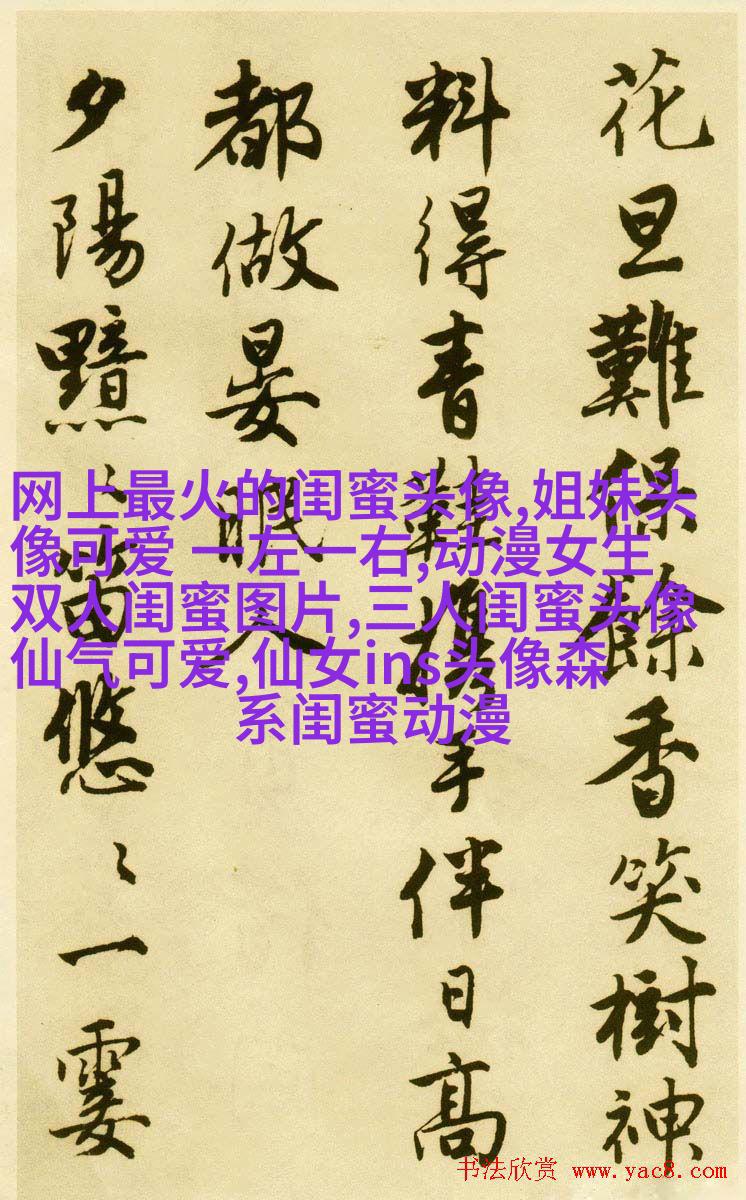 花旦難保餘香笑樹神
料得青鞋攜手伴日高
都做晏眠人
夕陽黯〻笛悠〻一霎
网上最火的闺蜜头像,姐妹头
像可爱 一左一右,动漫女生
双人闺蜜图片,三人闺蜜头像
仙气可爱,仙女ins头像森
系闺蜜动漫
书法欣赏 www.yac8.com